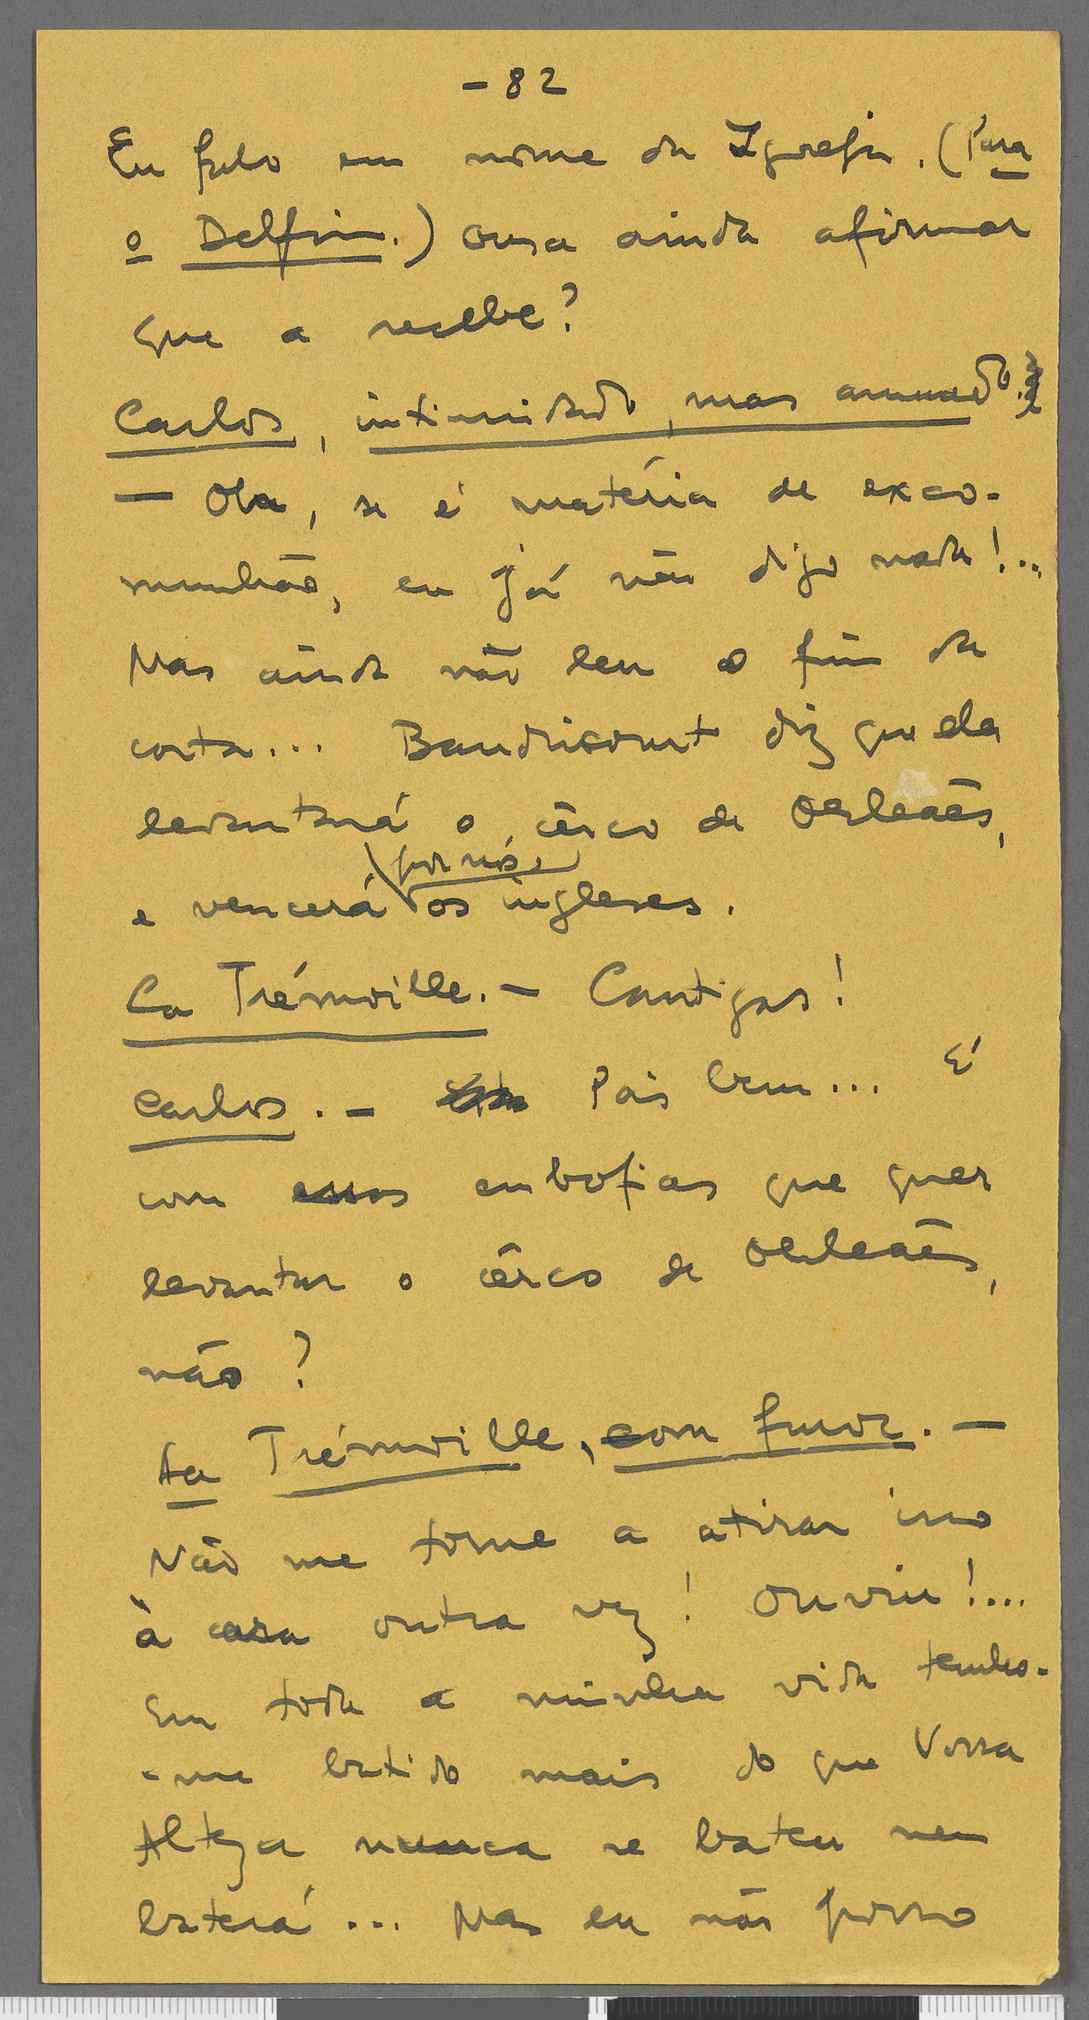 - 82
Eu falo em nome da Igreja. (Para
o Delfim.) Ousa ainda afirmar
que a recebe?
Carlos, intimidado, mas amuado.
— Ola, se é matéria de exco-
munhão, eu já não digo nada!...
Mas ainda não leu o fim da
carta... Baudricourt diz que ela
levantará o cêrco de Orleães,
por nós,
e vencerá os ingleses.
La Trémoille. - Cantigas!
Carlos. - Pois bem... É
com essas embofias que quer
levantar o cêrco de Orleães,
não?
La Trémoille, com furor. —
Não me torne a atirar isso
à cara outra vez! Ouviu!...
Em toda a minha vida tenho-
-me batido mais do que Vossa
Alteza nunca se bateu nem
baterá... Mas eu não posso